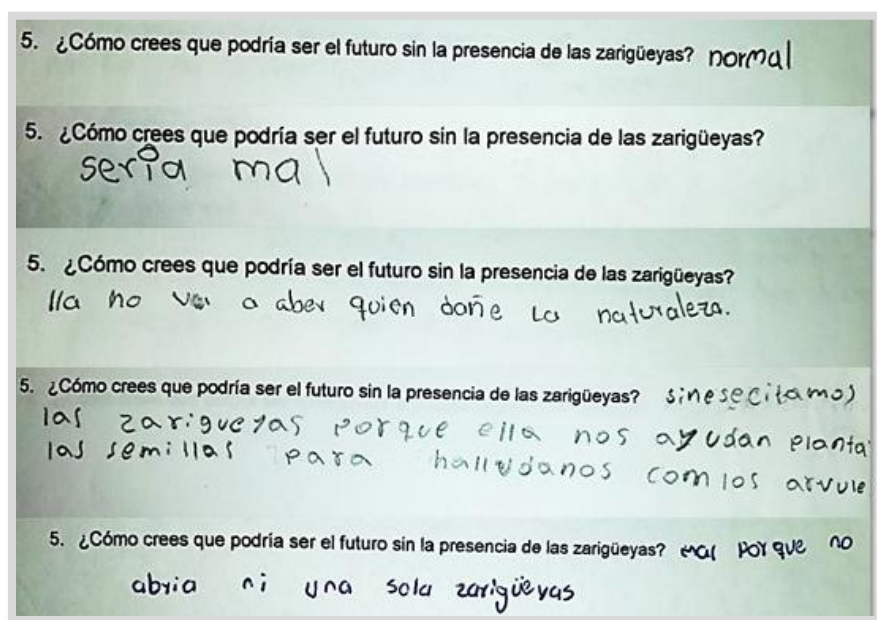 5. ¿Cómo crees que podría ser el futuro sin la presencia de las zarigüeyas? normal
5. ¿Cómo crees que podría ser el futuro sin la presencia de las zarigüeyas?
sería mal
5. ¿Cómo crees que podría ser el futuro sin la presencia de las zarigüeyas?
lla no va a aber quien dañe la naturaleza.
5. ¿Cómo crees que podría ser el futuro sin la presencia de las zarigüeyas? sinesecitamos
las zarigueyas porque ella nos ayudan planta
las semillas para halludanos com los arvule
5. ¿Cómo crees que podría ser el futuro sin la presencia de las zarigüeyas? mal por que no
abria ni una sola zarigüeyas